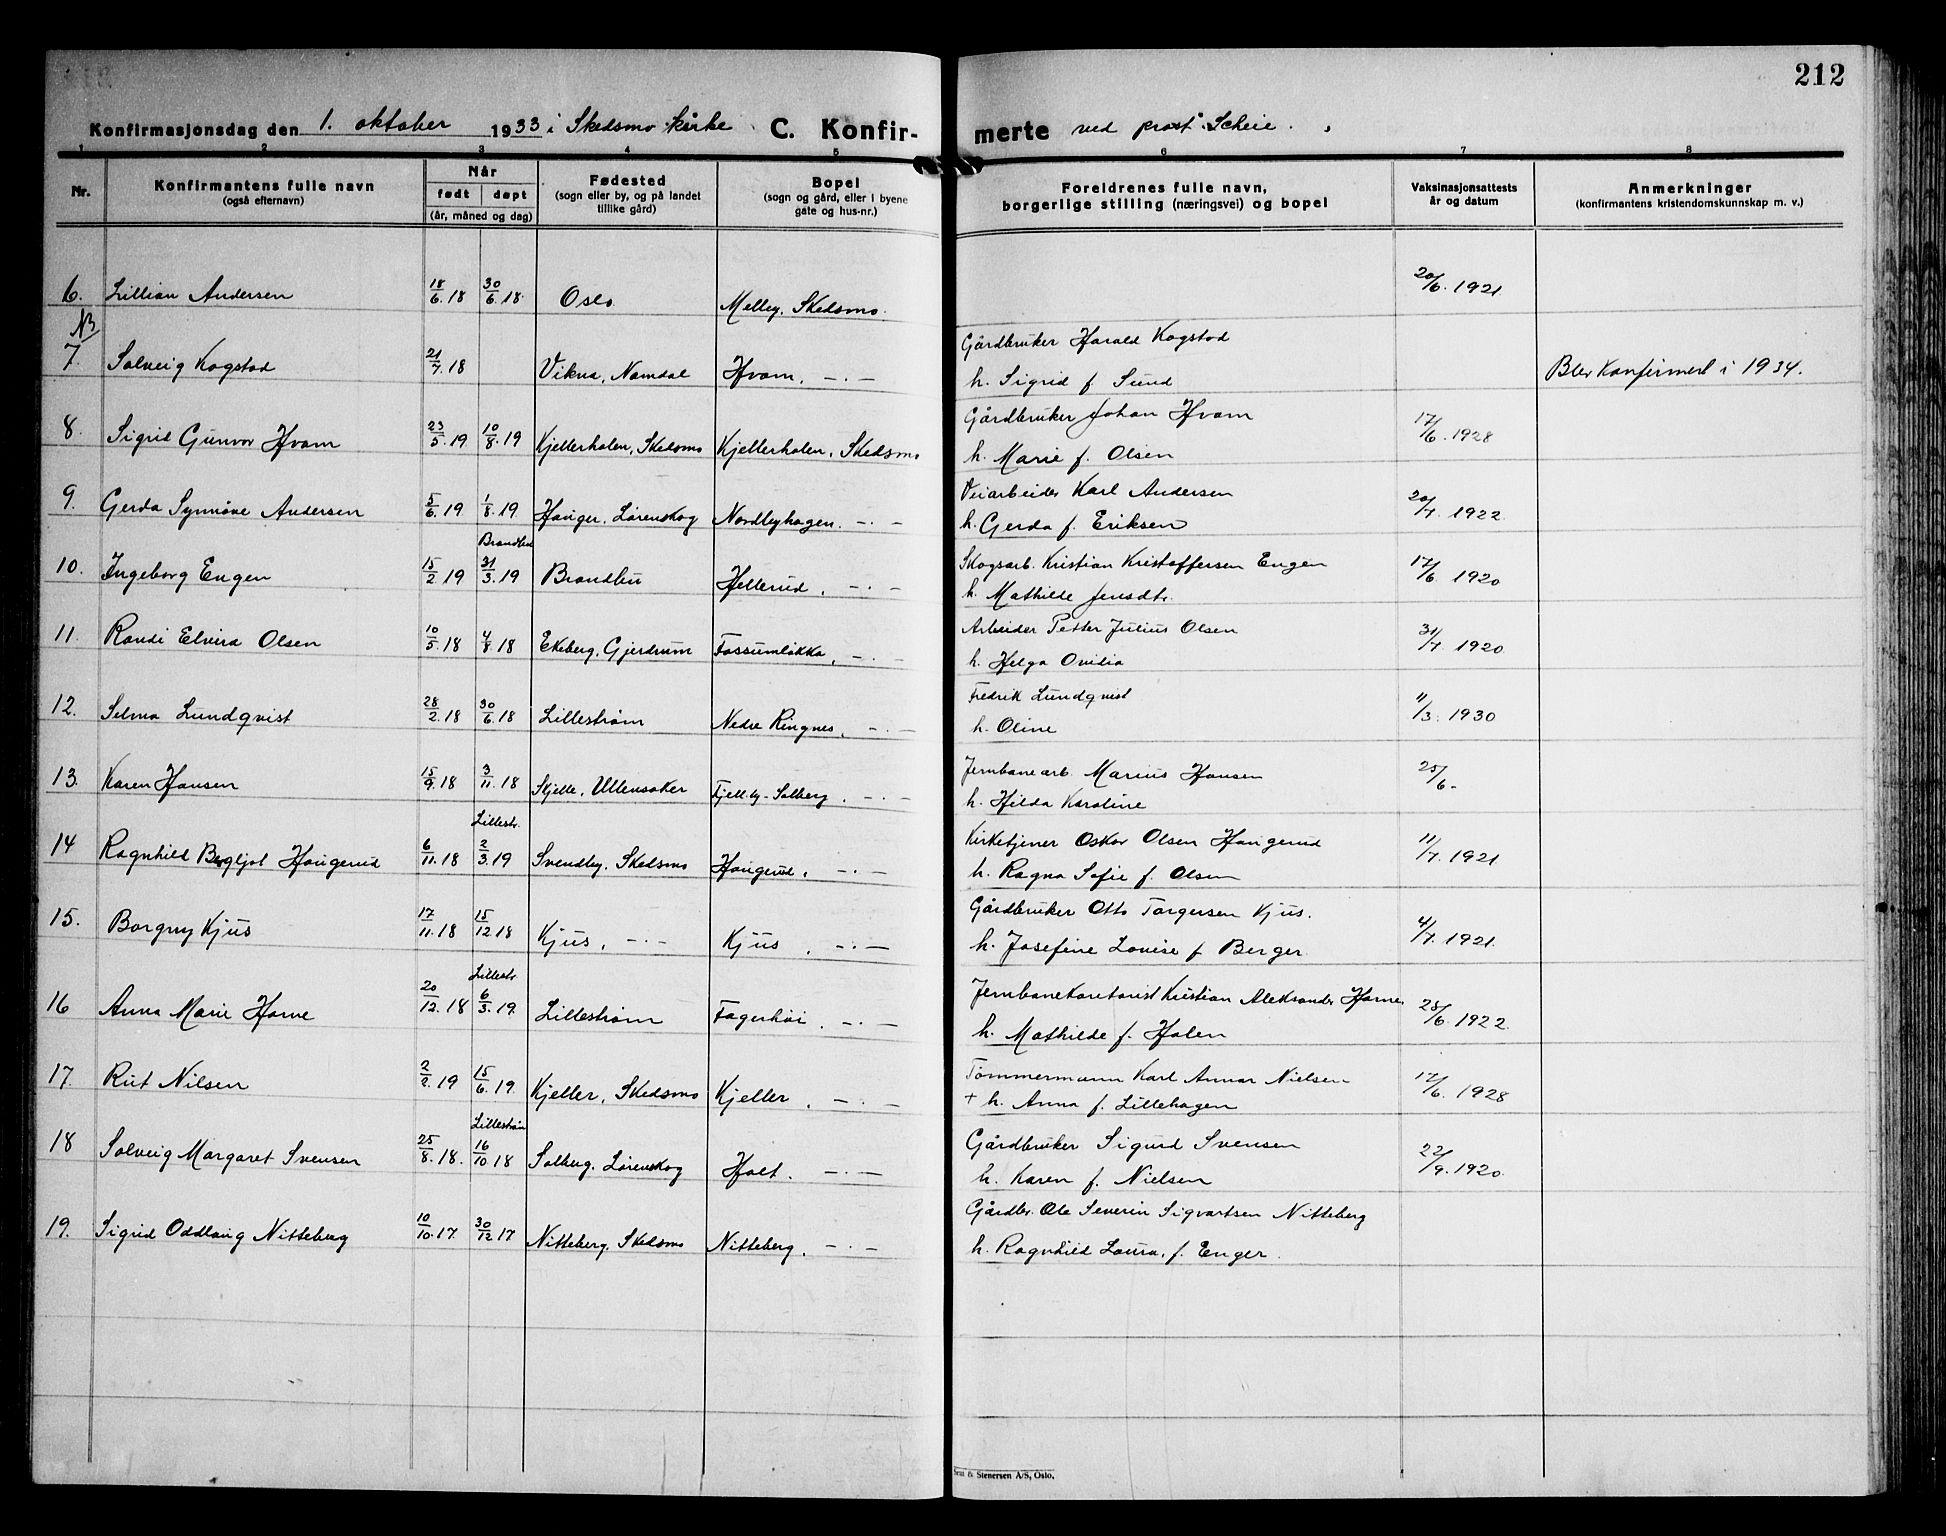 212
Konfirmasjonsdag den 1. oktober 1933 i Skedsmo kirke C. Konfir- merte ved prost Scheie.
1 2 3 4 5 6 7 8
Nr. Konfirmantens fulle navn (også efternavn) Når født døpt (år, måned og dag) Fødested (sogn eller by, og på landet tillike gård) Bopel (sogn og gård, eller i byene gate og hus-nr.) Foreldrenes fulle navn, borgerlige stilling (næringsvei) og bopel Vaksinasjonsattests år og datum Anmerkninger (konfirmantens kristendomskunnskap m. v.)
6. Lillian Andersen 18/6.18 30/6.18 Oslo Melley, Skedsmo. 20/6.1921
NB
Gårdbruker Harald Kogstad
7. Solveig Kogstad 21/7.18 Vikna, Namdal Hvam, -·- h. Sigrid f. Sund Blev konfirmert i 1934.
Gårdbruker Johan Hvam
8. Sigrid Gunvor Hvam 23/5.19 10/8.19 Kjellerholen, Skedsmo Kjellerholen, Skedsmo h. Marie f. Olsen 17/6.1928
Veiarbeider Karl Andersen
9. Gerda Synnöve Andersen 5/6.19 1/8.19 Hauger, Lørenskog Nordbyhagen. -·- h. Gerda f. Eriksen 20/7.1922
Brandbu
Skogsarb. Kristian Kristoffersen Engen
10. Ingeborg Engen 15/2.19 31/3.19 Brandbu Hellerud, -·- h. Mathilde Jensdtr. 17/6.1920
Arbeider Petter Julius Olsen
11. Randi Elvira Olsen 10/5.18 4/8.18 Ekeberg, Gjerdrum Fossumløkka, -·- h. Helga Ovidia 31/7.1920
Fredrik Lundqvist
12. Selma Lundqvist 28/2.18 30/6.18 Lillestrøm Nedre Ringnes, -·- h. Oline 11/3.1930
Jernbanearb. Marius Hansen
13. Karen Hansen 15/9.18 3/11.18 Skjelle, Ullensaker Fjellby-Solberg, -·- h. Hilda Karoline 25/6-
Lillestr.
Kirketjener Oskar Olsen Haugerud
14 Ragnhild Bergljot Haugerud 6/11.18 2/3.19 Svendby, Skedsmo Haugerud, -·- h. Ragna Sofie f. Olsen 11/7.1921
Gårdbruker Otto Torgersen Kjus.
15. Borgny Kjus 17/11.18 15/12 18 Kjus, -·- Kjus, -·- h. Josefine Lovise f Berger 4/7.1921
Lillestr.
Jernbanekontorist Kristian Aleksander Harne
16 Anna Marie Harne 20/12.18 6/3.19. Lillestrøm Fagerhöi, -·- h. Mathilde f. Holen 28/6.1922
Tømmermann Karl Annar Nielsen
17. Rut Nilsen 2/2.19 15/6.19 Kjeller, Skedsmo Kjeller, -·- + h. Anna f. Lillehagen 17/6.1928
Lillestrøm
Gårdbruker Sigurd Svensen
18 Solveig Margaret Svensen 25/8.18. 16/10 18 Solberg, Lørenskog Holt. -·- h. Karen f. Nielsen 22/9.1920
Gårdbr. Ole Severin Sigvartsen Nitteberg
19. Sigrid Oddlaug Nitteberg 10/10.17. 30/12 17 Nitteberg, Skedsmo Nitteberg, -·- h. Ragnhild Laura, f. Enger.
& Stenersen A/S, Oslo.